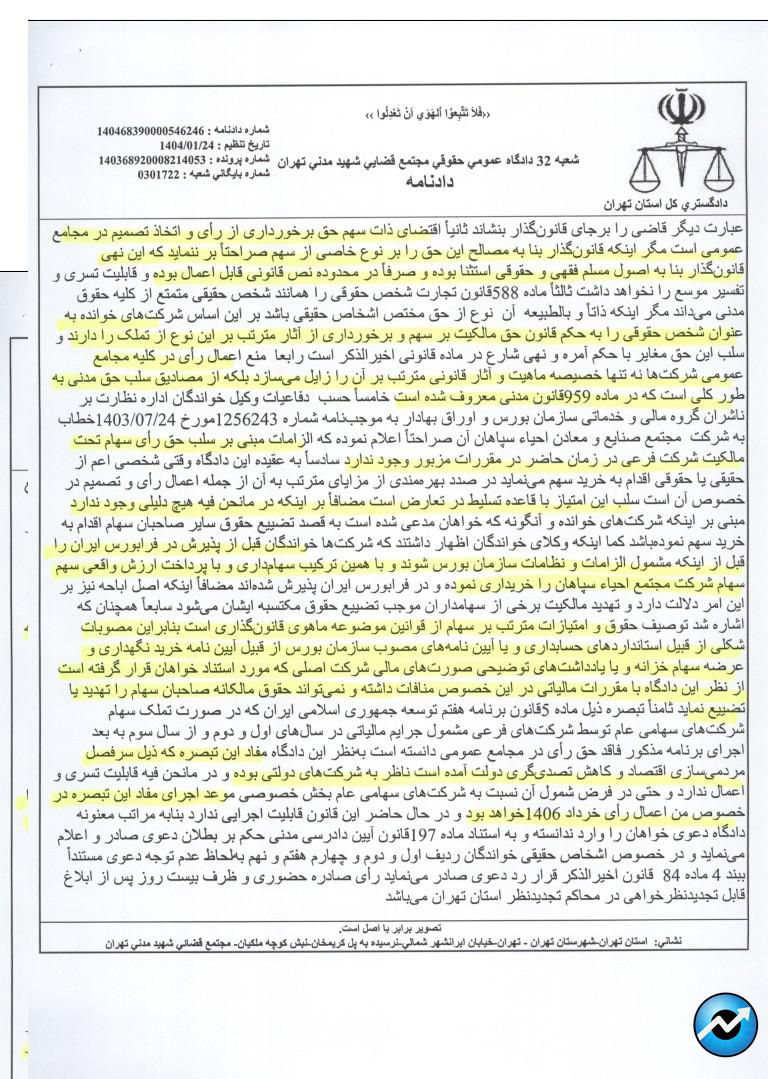 «فَلاَ تَتَّبِعُوا الْهَوَي أَنْ تَعْدِلُوا»
شماره دادنامه : 140468390000546246
تاریخ تنظیم : 1404/01/24
شماره پرونده : 140368920008214053
شماره بایگانی شعبه : 0301722
شعبه 32 دادگاه عمومي حقوقي مجتمع قضايي شهيد مدني تهران
دادنامه
دادگستري کل استان تهران
عبارت دیگر قاضی را برجای قانون‌گذار بنشاند ثانیاً اقتضای ذات سهم حق برخورداری از رأی و اتخاذ تصمیم در مجامع
عمومی است مگر اینکه قانون‌گذار بنا به مصالح این حق را بر نوع خاصی از سهم صراحتاً بر ننماید که این نهی
قانون‌گذار بنا به اصول مسلم فقهی و حقوقی استثنا بوده و صرفاً در محدوده نص قانونی قابل اعمال بوده و قابلیت تسری و
تفسیر موسع را نخواهد داشت ثالثاً ماده 588قانون تجارت شخص حقوقی را همانند شخص حقیقی متمتع از کلیه حقوق
مدنی می‌داند مگر اینکه ذاتاً و بالطبیعه آن نوع از حق مختص اشخاص حقیقی باشد بر این اساس شرکت‌های خوانده به
عنوان شخص حقوقی را به حکم قانون حق مالکیت بر سهم و برخورداری از آثار مترتب بر این نوع از تملک را دارند و
سلب این حق مغایر با حکم آمره و نهی شارع در ماده قانونی اخیرالذکر است رابعا منع اعمال رأی در کلیه مجامع
عمومی شرکت‌ها نه تنها خصیصه ماهیت و آثار قانونی مترتب بر آن را زایل می‌سازد بلکه از مصادیق سلب حق مدنی به
طور کلی است که در ماده 959قانون مدنی معروف شده است خامساً حسب دفاعیات وکیل خواندگان اداره نظارت بر
ناشران گروه مالی و خدماتی سازمان بورس و اوراق بهادار به موجب‌نامه شماره 1256243مورخ 1403/07/24خطاب
به شرکت مجتمع صنایع و معادن احیاء سپاهان آن صراحتاً اعلام نموده که الزامات مبنی بر سلب حق رأی سهام تحت
مالکیت شرکت فرعی در زمان حاضر در مقررات مزبور وجود ندارد سادساً به عقیده این دادگاه وقتی شخصی اعم از
حقیقی یا حقوقی اقدام به خرید سهم می‌نماید در صدد بهره‌مندی از مزایای مترتب به آن از جمله اعمال رأی و تصمیم در
خصوص آن است سلب این امتیاز با قاعده تسلیط در تعارض است مضافاً بر اینکه در مانحن فیه هیچ دلیلی وجود ندارد
مبنی بر اینکه شرکت‌های خوانده و آنگونه که خواهان مدعی شده است به قصد تضییع حقوق سایر صاحبان سهام اقدام به
خرید سهم نموده‌باشد کما اینکه وکلای خواندگان اظهار داشتند که شرکت‌ها خواندگان قبل از پذیرش در فرابورس ایران را
قبل از اینکه مشمول الزامات و نظامات سازمان بورس شوند و با همین ترکیب سهام‌داری و با پرداخت ارزش واقعی سهم
سهام شرکت مجتمع احیاء سپاهان را خریداری نموده و در فرابورس ایران پذیرش شده‌اند مضافاً اینکه اصل اباحه نیز بر
این امر دلالت دارد و تهدید مالکیت برخی از سهامداران موجب تضییع حقوق مکتسبه ایشان می‌شود سابعاً همچنان که
اشاره شد توصیف حقوق و امتیازات مترتب بر سهام از قوانین موضوعه ماهوی قانون‌گذاری است بنابراین مصوبات
شکلی از قبیل استانداردهای حسابداری و یا آیین نامه‌های مصوب سازمان بورس از قبیل آیین نامه خرید نگهداری و
عرضه سهام خزانه و یا یادداشت‌های توضیحی صورت‌های مالی شرکت اصلی که مورد استناد خواهان قرار گرفته است
از نظر این دادگاه با مقررات مالیاتی در این خصوص منافات داشته و نمی‌تواند حقوق مالکانه صاحبان سهام را تهدید یا
تضییع نماید ثامناً تبصره ذیل ماده 5قانون برنامه هفتم توسعه جمهوری اسلامی ایران که در صورت تملک سهام
شرکت‌های سهامی عام توسط شرکت‌های فرعی مشمول جرایم مالیاتی در سال‌های اول و دوم و از سال سوم به بعد
اجرای برنامه مذکور فاقد حق رأی در مجامع عمومی دانسته است به‌نظر این دادگاه مفاد این تبصره که ذیل سرفصل
مردمی‌سازی اقتصاد و کاهش تصدی‌گری دولت آمده است ناظر به شرکت‌های دولتی بوده و در مانحن فیه قابلیت تسری و
اعمال ندارد و حتی در فرض شمول آن نسبت به شرکت‌های سهامی عام بخش خصوصی موعد اجرای مفاد این تبصره در
خصوص من اعمال رأی خرداد 1406خواهد بود و در حال حاضر این قانون قابلیت اجرایی ندارد بنابه مراتب معنونه
دادگاه دعوی خواهان را وارد ندانسته و به استناد ماده 197قانون آیین دادرسی مدنی حکم بر بطلان دعوی صادر و اعلام
می‌نماید و در خصوص اشخاص حقیقی خواندگان ردیف اول و دوم و چهارم هفتم و نهم به‌لحاظ عدم توجه دعوی مستنداً
ببند 4 ماده 84 قانون اخیرالذکر قرار رد دعوی صادر می‌نماید رأی صادره حضوری و ظرف بیست روز پس از ابلاغ
قابل تجدیدنظرخواهی در محاکم تجدیدنظر استان تهران می‌باشد
تصویر برابر با اصل است.
نشانی: استان تهران-شهرستان تهران - تهران-خیابان ایرانشهر شمالی-نرسیده به پل کریمخان-نبش کوچه ملکیان- مجتمع قضائي شهید مدنی تهران